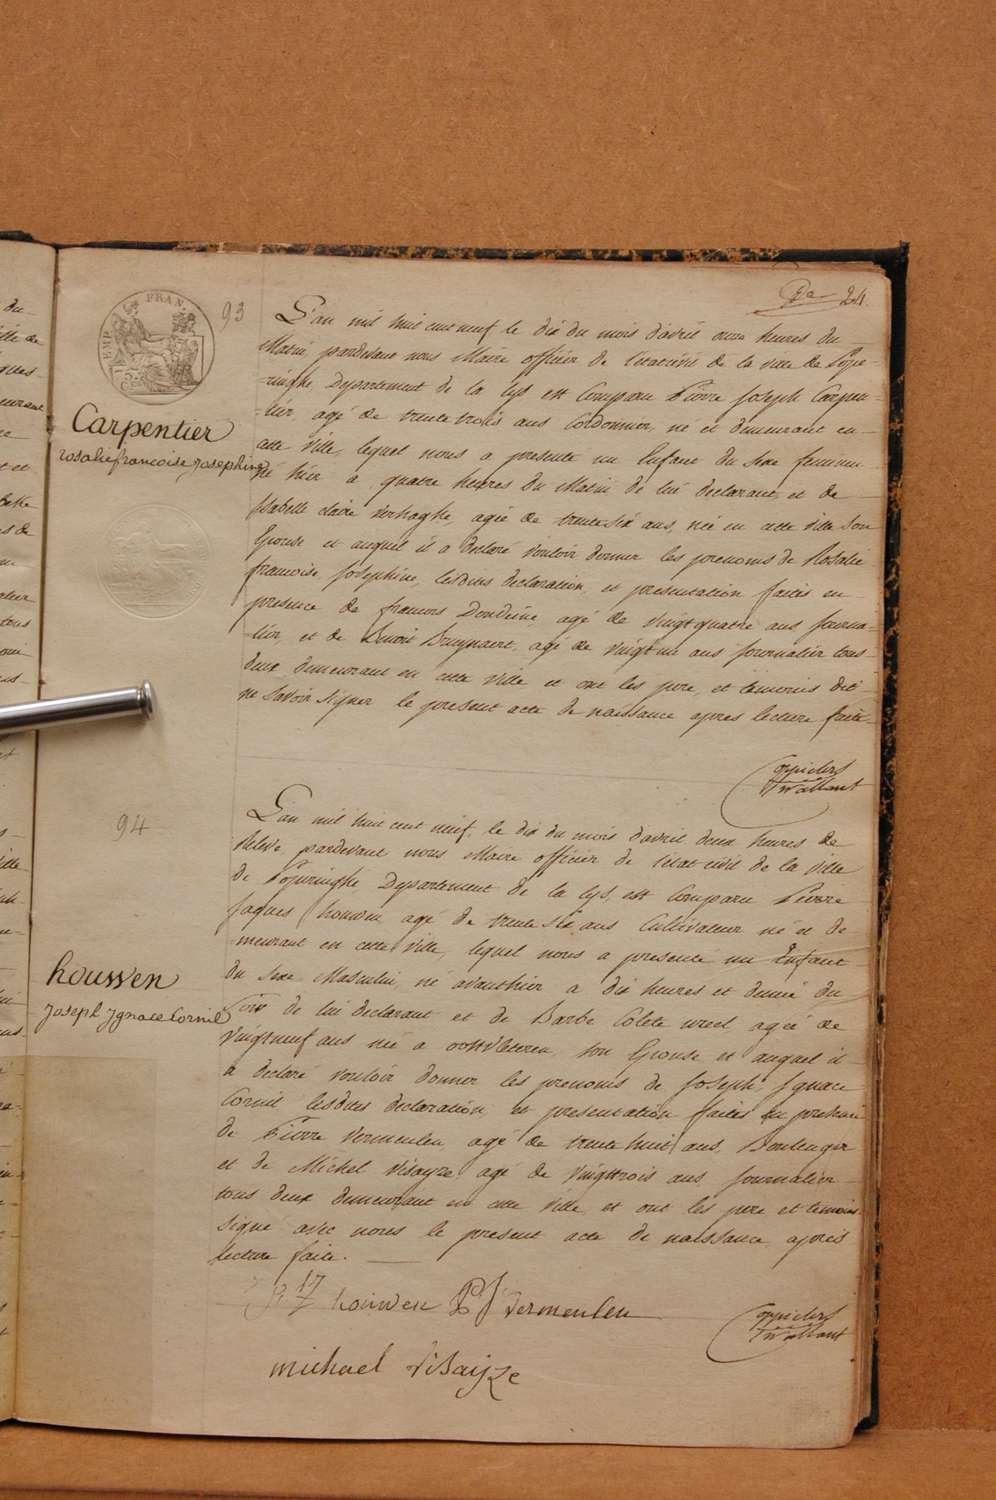 De 24.
EMP. FRAN.
93
Carpentier
rosalie francoise Josephine
L'an mil huit cent neuf le dix du mois d'avril onze heures du
Matin pardevant nous Maire officier de l'etat civil de la ville de Pope-
-ringhe Departement de la Lys est Comparu Pierre Joseph Carpen-
-tier, agé de trente trois ans Cordonnier, né et demeurant en
cette ville, lequel nous a presenté un Enfant du Sexe feminin
né hier a quatre heures du Matin de lui declarant et de
Isabelle Claire Verhaghe, agée de trente six ans, née en cette ville son
Epouse et auquel il a declaré vouloir donner les prenoms de Rosalie
francoise Josephine, lesdites declaration et presentation faites en
presence de francois Dondeine, agé de vingt quatre ans journa-
-lier, et de Benoit Bruynaert, agé de vingt un ans journalier tous
deux demeurant en cette ville et ont les pere, et temoins dit
ne Savoir Signer le present acte de naissance apres lecture faite
94
houwen
Joseph Ignace Cornil
L'an mil huit cent neuf, le dix du mois d'avril deux heures de
Relevé pardevant nous Maire officier de l'etat civil de la ville
de Poperinghe Departement de la Lys, est Comparu Pierre
Jaques houwen agé de trente six ans Cultivateur né et de-
-meurant en cette ville, lequel nous a presenté un Enfant
du Sexe Masculin, né avant hier a dix heures et demie du
Soir de lui declarant et de Barbe Colete agée de
vingt neuf ans née a oostvleteren, son Epouse et auquel il
a declaré vouloir donner les prenoms de Joseph, Ignace
Cornil lesdites declaration et presentation faites en presence
de Pierre Vermeulen agé de trente huit ans, Boulenger
et de Michel Visayze agé de vingt trois ans journalier
tous deux demeurant en cette ville et ont les pere et temoins
signé avec nous le present acte de naissance apres
lecture faite.
houwen PJ Vermeulen
michael Visaijze